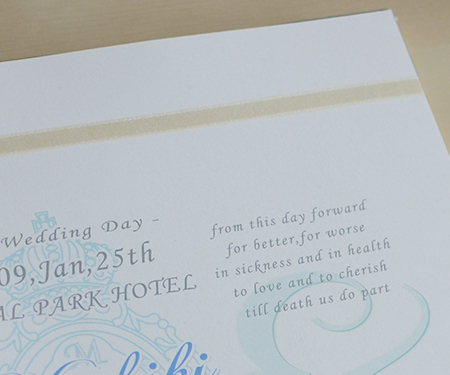 Wedding Day -
09,Jan,25th
AL PARK HOTEL
from this day forward
for better,for worse
in sickness and in health
to love and to cherish
till death us do part
M